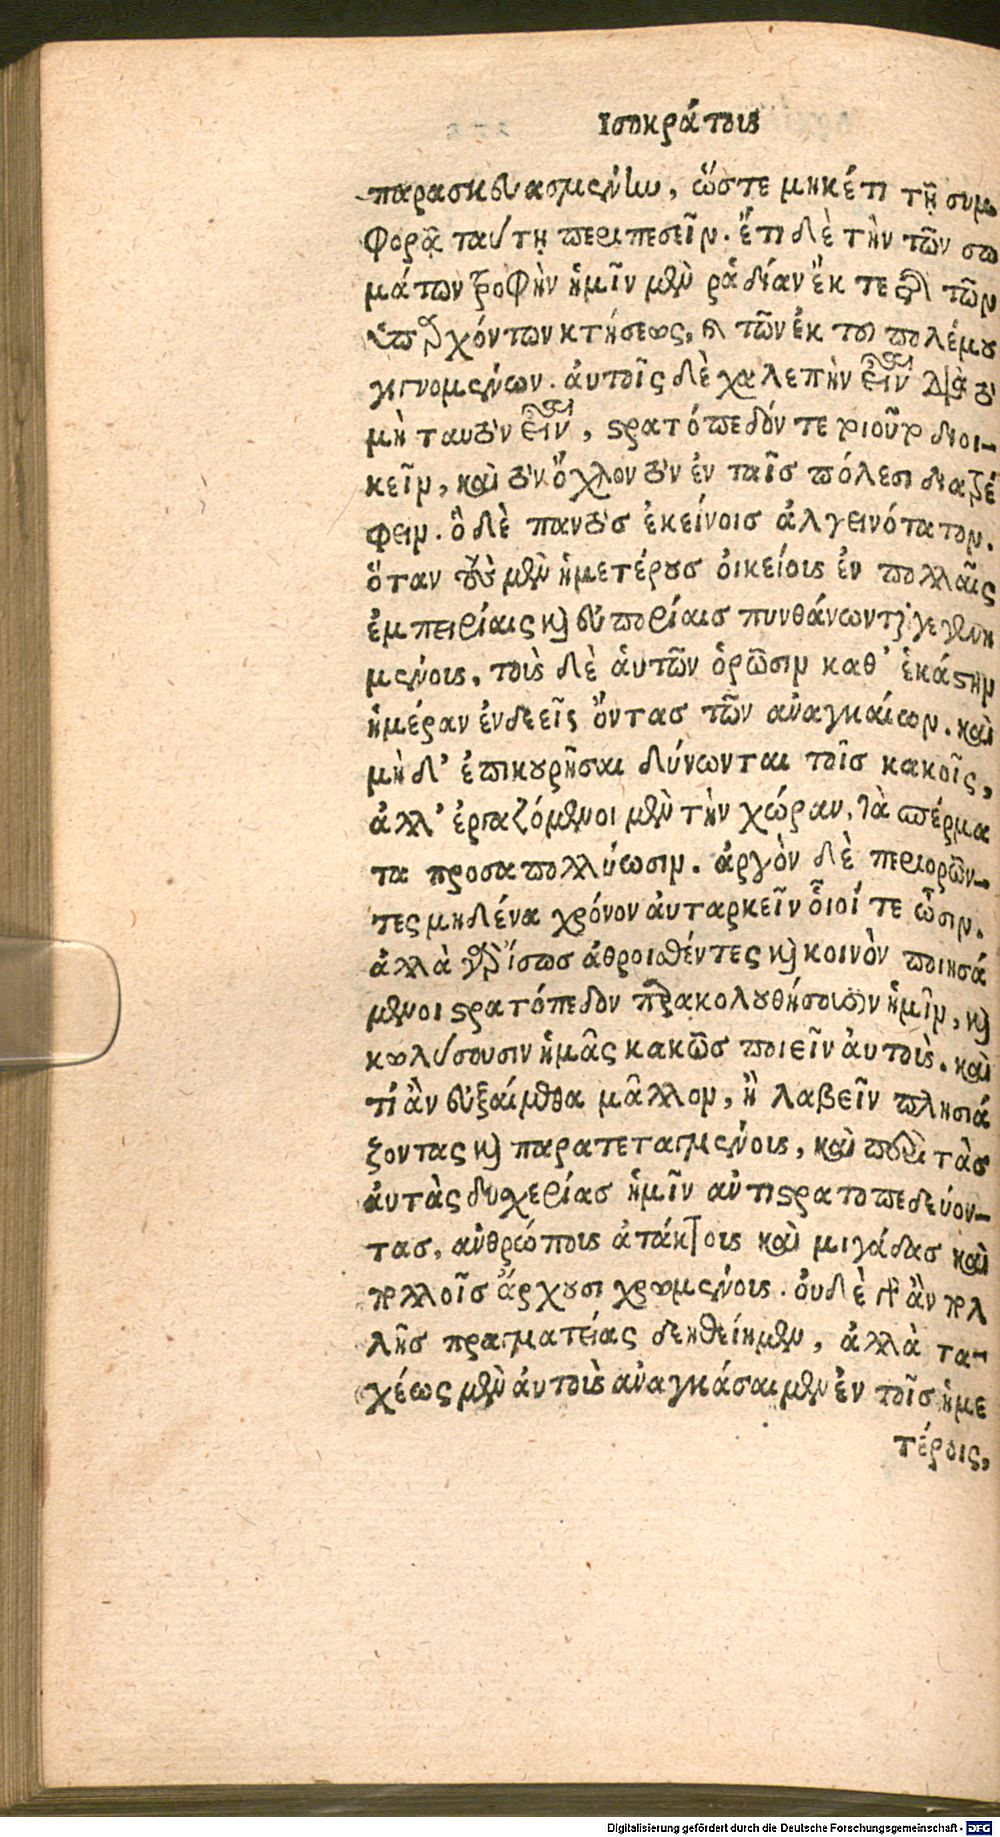 Ισοκράτους
παρασκευασμένην, ὥστε μηκέτι τῇ συμ
φορᾷ ταύτῃ περιπεσεῖν. ἔτι δὲ τὴν τῶν σω
μάτων τροφὴν ἡμῖν μὲν ῥᾳδίαν ἔκ τε τῶν
ὑπαρχόντων κτήσεως, καὶ τῶν ἐκ τοῦ πολέμου
γιγνομένων. ἀυτοῖς δὲ χαλεπὴν εἶναι διὰ τὸ
μὴ ταυτὸν εἶναι, στρατόπεδόν τε τοιοῦτον διοι-
κεῖν, καὶ τὸν ὄχλον τὸν ἐν ταῖς πόλεσι διατρέ
φειν. ὃ δὲ πάντων ἐκείνοις ἀλγεινότατον.
ὅταν τοὺς μὲν ἡμετέρους οἰκείους ἐν πολλαῖς
ἐμπειρίαις καὶ εὐπορίαις πυνθάνωνται γεγενη
μένους, τοὺς δὲ ἁυτῶν ὁρῶσιν καθ' ἑκάστην
ἡμέραν ἐνδεεῖς ὄντας τῶν ἀναγκαίων. καὶ
μὴ δ' ἐπικουρῆσαι δύνωνται τοῖς κακοῖς,
ἀλλ' ἐργαζόμενοι μὲν τὴν χώραν, τὰ σπέρμα
τα προσαπολλύωσιν. ἀργὸν δὲ περιορῶν-
τες μηδένα χρόνον ἀυταρκεῖν οἷοί τε ὦσιν.
ἀλλὰ γὰρ ἴσως ἀθροισθέντες καὶ κοινὸν ποιησά
μενοι στρατόπεδον παρακολουθήσουσιν ἡμῖν, καὶ
κωλύσουσιν ἡμᾶς κακῶς ποιεῖν ἀυτούς. καὶ
τί ἂν εὐξαίμεθα μᾶλλον, ἢ λαβεῖν πλησιά
ζοντας καὶ παρατεταγμένους, καὶ περὶ τὰς
ἀυτὰς δυσχερίας ἡμῖν ἀντιστρατοπεδεύον-
τας, ἀνθρώπους ἀτάκτους καὶ μιγάδας καὶ
πολλοῖς ἄρχουσι χρωμένους. ὀυδὲ γὰρ ἂν πολ
λῆς πραγματείας δεηθείημεν, ἀλλὰ τα-
χέως μὲν ἀυτοὺς ἀναγκάσαιμεν ἐν τοῖς ἡμε
τέροις,
Digitalisierung gefördert durch die Deutsche Forschungsgemeinschaft - DFG